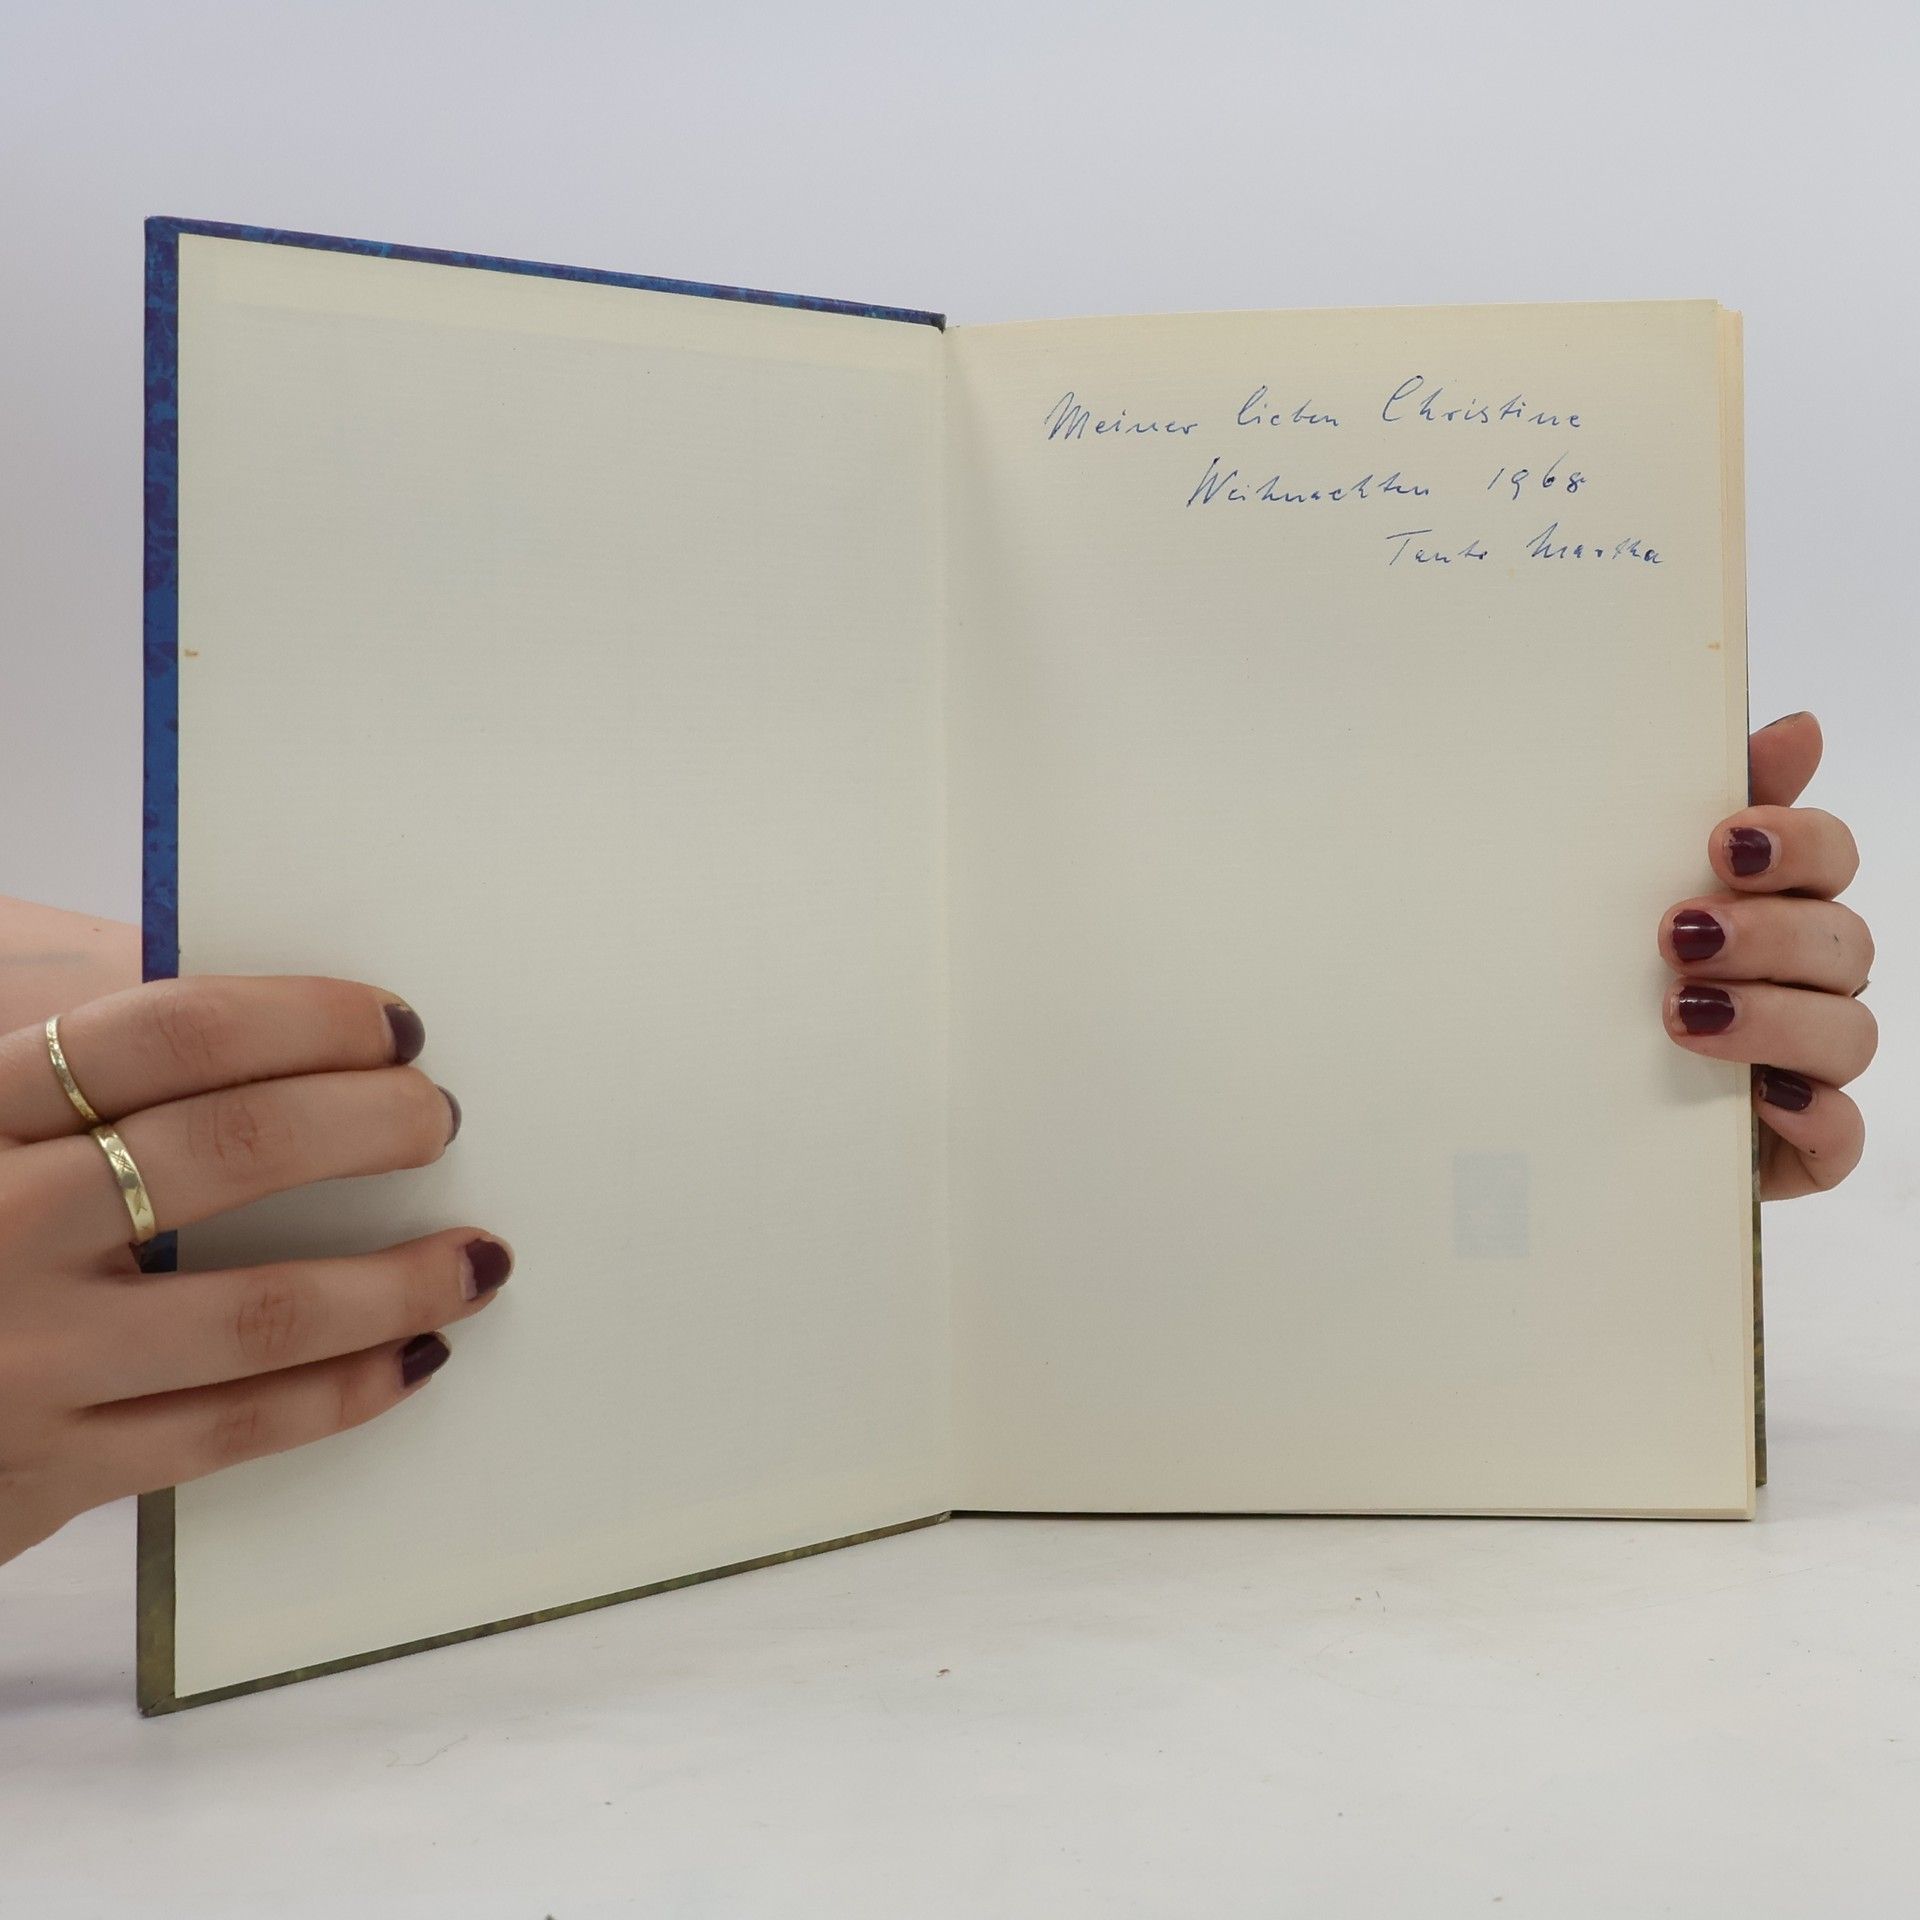 Meiner lieben Christine
Weihnachten 1968
Tante Martha